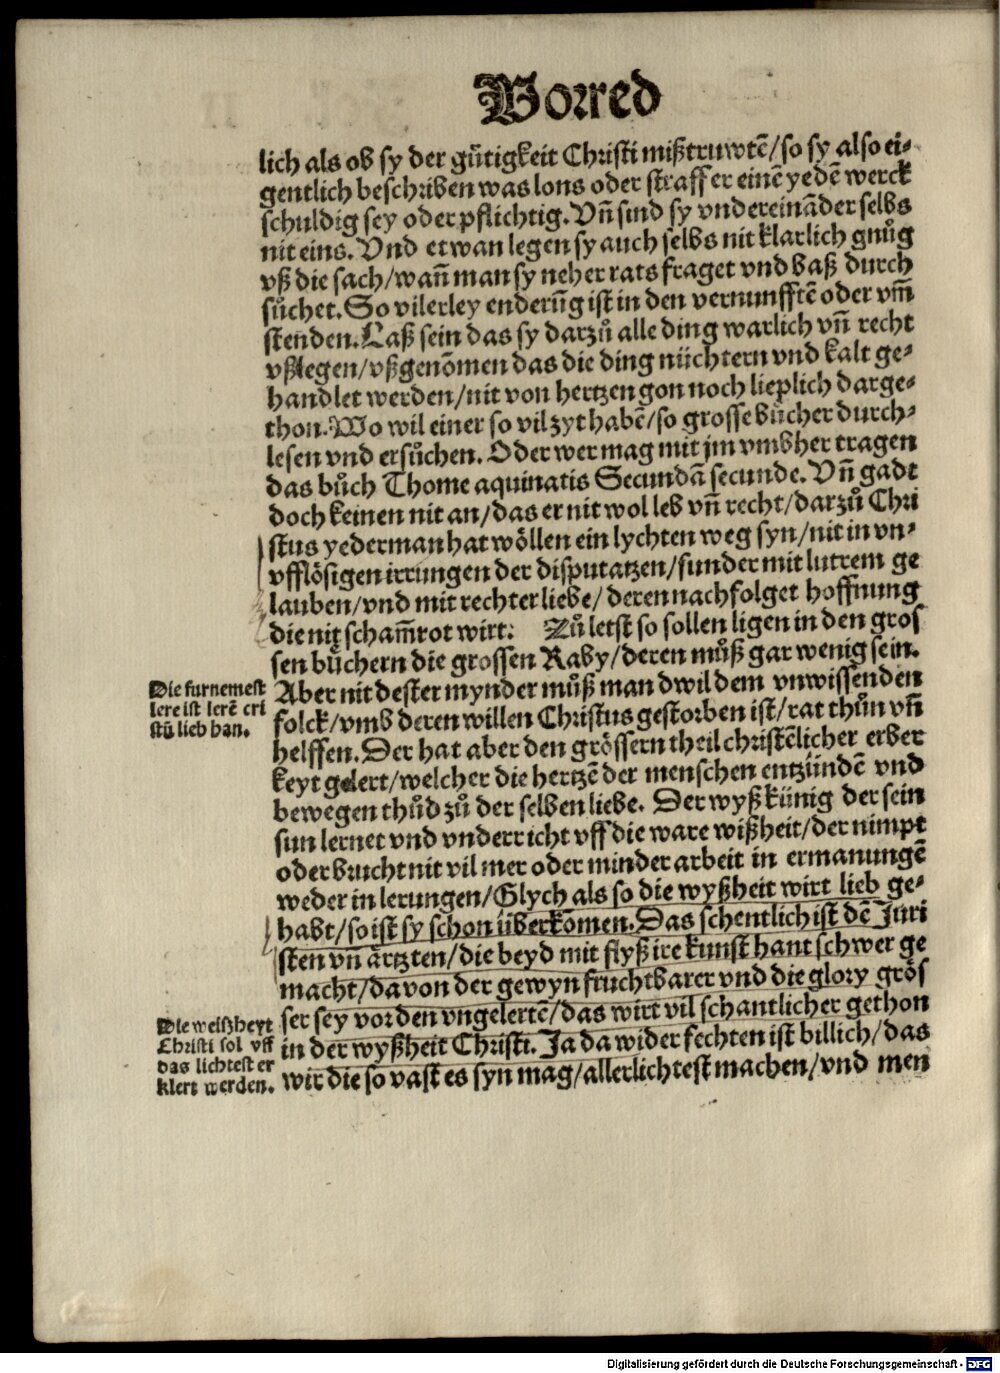 Vorred
lich als ob sy der gütigkeit Christi mißtruwtē/so sy also ei-
gentlich beschriben was lons oder straff er einē yedē werck
schuldig sey oder pflichtig. Vñ sind sy vndereināder selbs
nit eins. Vnd etwan legen sy auch selbs nit klarlich gnůg
vß die sach/wañ man sy neher rats fraget vnd baß durch
sůchet. So vilerley enderūg ist in den vernunfftē oder vm̄
stenden. Laß sein das sy darzů alle ding warlich vñ recht
vßlegen/vßgenōmen das die ding nüchtern vnd kalt ge-
handlet werden/nit von hertzen gon noch lieplich darge-
thon. Wo wil einer so vil zyt habē/so grosse bücher durch-
lesen vnd ersůchen. Oder wer mag mit jm vmbher tragen
das bůch Thome aquinatis Secundā secunde. Vñ gadt
doch keinen nit an/das er nit wol leb vñ recht/darzů Chri
stus yederman hat wöllen ein lychten weg syn/nit in vn-
vfflösigen irrungen der disputatzen/sunder mit lutrem ge
lauben/vnd mit rechter liebe/deren nachfolget hoffnung
die nit scham̄rot wirt. Zů letst so sollen ligen in den gros
sen büchern die grossen Raby/deren můß gar wenig sein.
Die furnemest
lere ist lerē cri
stū lieb han.
Aber nit dester mynder můß man dwil dem vnwissenden
folck/vmb deren willen Christus gestorben ist/rat thůn vñ
helffen. Der hat aber den grössern theil christēlicher erber
keyt gelert/welcher die hertzē der menschen entzündē vnd
bewegen thůd zů der selben liebe. Der wyß künig der sein
sun lernet vnd vnderricht vff die ware wißheit/der nimpt
oder brucht nit vil mer oder minder arbeit in ermanungē
weder in lerungen/Glych als so die wyßheit wirt lieb ge-
habt/so ist sy schon überkōmen. Das schentlich ist dē Juri
sten vñ ärtzten/die beyd mit flyß ire kunst hant schwer ge
macht/da von der gewyn fruchtbarer vnd die glory grös
ser sey vor den vngelertē/das wirt vil schantlicher gethon
Die weißheyt
Christi sol vff
das lichtest er
klert werden.
in der wyßheit Christi. Ja da wider fechten ist billich/das
wir die so vast es syn mag/allerlichtest machen/vnd men
Digitalisierung gefördert durch die Deutsche Forschungsgemeinschaft - DFG